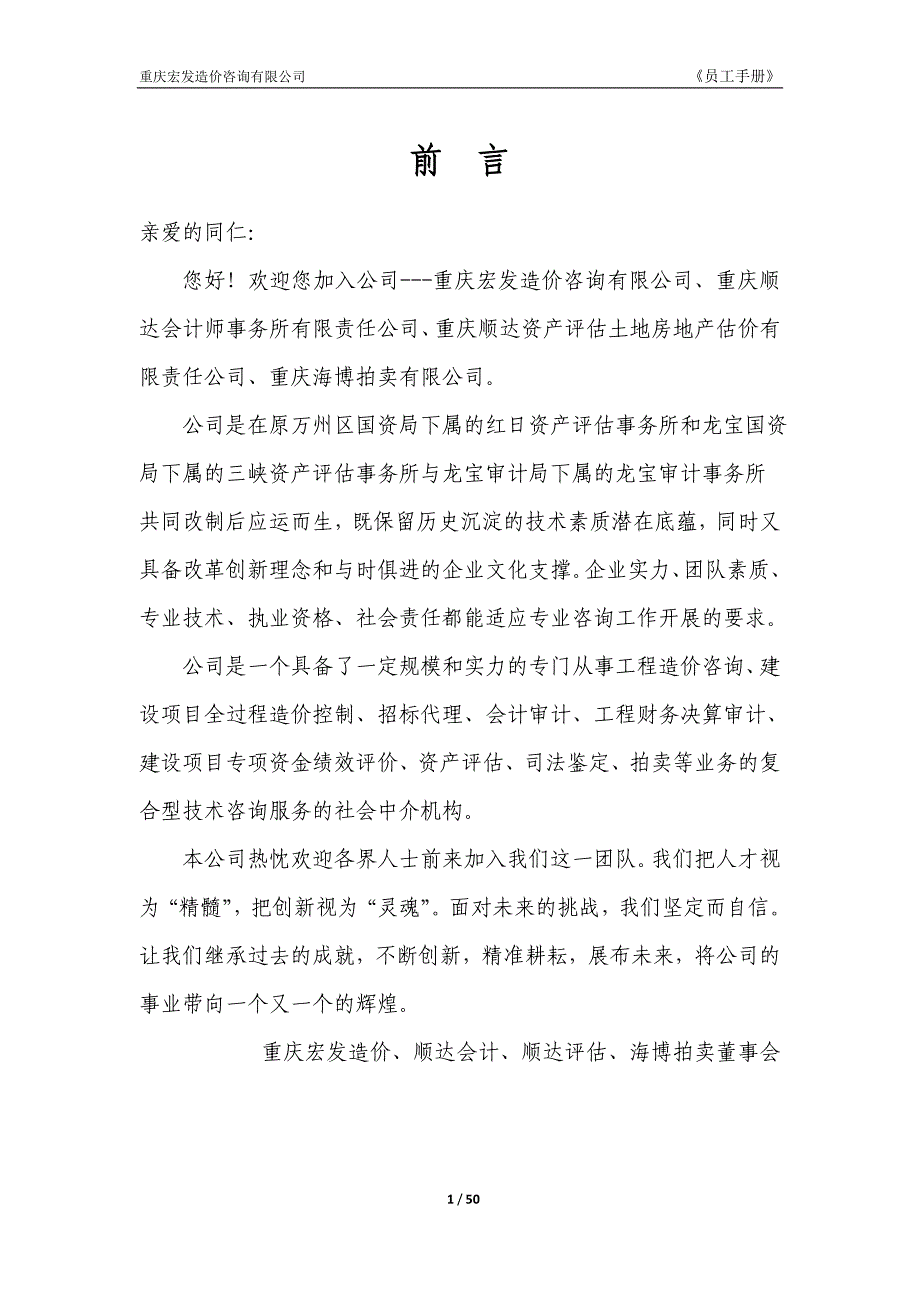 重庆宏发造价咨询有限公司 《员工手册》
前 言
亲爱的同仁:
您好！欢迎您加入公司---重庆宏发造价咨询有限公司、重庆顺
达会计师事务所有限责任公司、重庆顺达资产评估土地房地产估价有
限责任公司、重庆海博拍卖有限公司。
公司是在原万州区国资局下属的红日资产评估事务所和龙宝国资
局下属的三峡资产评估事务所与龙宝审计局下属的龙宝审计事务所
共同改制后应运而生，既保留历史沉淀的技术素质潜在底蕴，同时又
具备改革创新理念和与时俱进的企业文化支撑。企业实力、团队素质、
专业技术、执业资格、社会责任都能适应专业咨询工作开展的要求。
公司是一个具备了一定规模和实力的专门从事工程造价咨询、建
设项目全过程造价控制、招标代理、会计审计、工程财务决算审计、
建设项目专项资金绩效评价、资产评估、司法鉴定、拍卖等业务的复
合型技术咨询服务的社会中介机构。
本公司热忱欢迎各界人士前来加入我们这一团队。我们把人才视
为“精髓”，把创新视为“灵魂”。面对未来的挑战，我们坚定而自信。
让我们继承过去的成就，不断创新，精准耕耘，展布未来，将公司的
事业带向一个又一个的辉煌。
重庆宏发造价、顺达会计、顺达评估、海博拍卖董事会
1 / 50